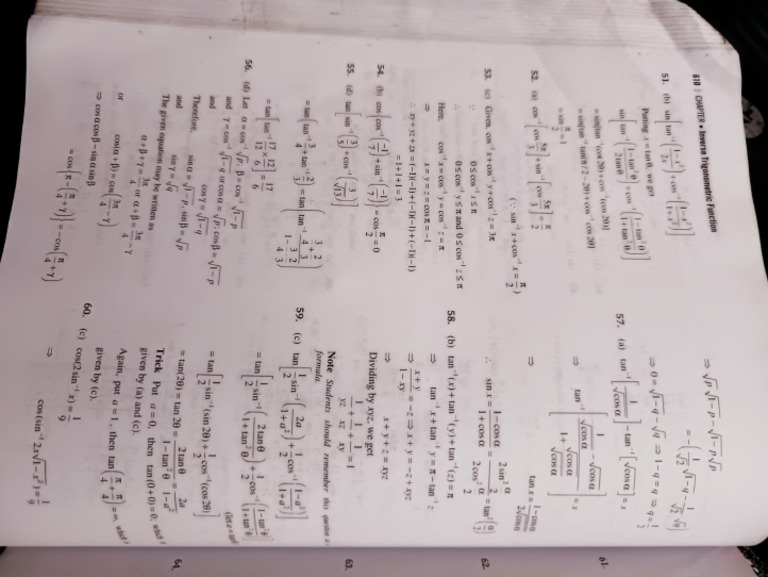 610 | CHAPTER • Inverse Trigonometric Function
51. (b) sin [tan⁻¹((1−x²)/2x) + cos⁻¹((1−x²)/(1+x²))]
Putting x = tan θ, we get
sin [tan⁻¹((1−tan²θ)/(2tanθ)) + cos⁻¹((1−tan²θ)/(1+tan²θ))]
= sin[tan⁻¹(cot 2θ) + cos⁻¹(cos 2θ)]
= sin[tan⁻¹ tan(π/2 − 2θ) + cos⁻¹ cos 2θ]
= sin π/2 = 1
52. (a) cos⁻¹[cos 5π/3] + sin⁻¹[cos 5π/3] = π/2
(∵ sin⁻¹ x + cos⁻¹ x = π/2)
53. (c) Given, cos⁻¹ x + cos⁻¹ y + cos⁻¹ z = 3π
∵ 0 ≤ cos⁻¹ x ≤ π
∴ 0 ≤ cos⁻¹ y ≤ π and 0 ≤ cos⁻¹ z ≤ π
Here, cos⁻¹ x = cos⁻¹ y = cos⁻¹ z = π
⇒ x = y = z = cos π = −1
∴ xy + yz + zx = (−1)(−1) + (−1)(−1) + (−1)(−1)
= 1 + 1 + 1 = 3
54. (b) cos[cos⁻¹(−1/7) + sin⁻¹(−1/7)] = cos π/2 = 0
55. (d) tan[sin⁻¹(3/5) + cos⁻¹(3/√13)]
= tan[tan⁻¹ 3/4 + tan⁻¹ 2/3] = tan[tan⁻¹ (3/4 + 2/3)/(1 − 3/4 · 2/3)]
= tan[tan⁻¹ 17/12 · 12/6] = 17/6
56. (d) Let α = cos⁻¹ √p, β = cos⁻¹ √1−p
and γ = cos⁻¹ √1−q or cos α = √p, cos β = √1−p
and cos γ = √1−q
Therefore, sin α = √1−p, sin β = √p
and sin γ = √q
The given equation may be written as
α + β + γ = 3π/4 or α + β = 3π/4 − γ
or cos(α + β) = cos(3π/4 − γ)
⇒ cos α cos β − sin α sin β
= cos{π − (π/4 + γ)} = −cos(π/4 + γ)
⇒ √p √1−p − √1−p √p
= −(1/√2 √1−q − 1/√2 √q)
⇒ 0 = √1−q − √q ⇒ 1 − q = q ⇒ q = 1/2
57. (a) tan⁻¹[1/√cos α] − tan⁻¹[√cos α] = x
⇒ tan⁻¹[(1/√cos α − √cos α)/(1 + √cos α/√cos α)] = x
⇒ tan x = (1 − cos α)/(2√cos α)
∴ sin x = (1 − cos α)/(1 + cos α) = (2 sin² α/2)/(2 cos² α/2) = tan²(α/2)
58. (b) tan⁻¹(x) + tan⁻¹(y) + tan⁻¹(z) = π
⇒ tan⁻¹ x + tan⁻¹ y = π − tan⁻¹ z
⇒ (x + y)/(1 − xy) = −z ⇒ x + y = −z + xyz
⇒ x + y + z = xyz
Dividing by xyz, we get
1/yz + 1/xz + 1/xy = 1
Note Students should remember this question
formula.
59. (c) tan[1/2 sin⁻¹(2a/(1+a²)) + 1/2 cos⁻¹((1−a²)/(1+a²))]
= tan[1/2 sin⁻¹(2 tan θ/(1+tan²θ)) + 1/2 cos⁻¹((1−tan²θ)/(1+tan²θ))]
= tan[1/2 sin⁻¹(sin 2θ) + 1/2 cos⁻¹(cos 2θ)]
= tan(2θ) = tan 2θ = 2 tan θ/(1 − tan²θ) = 2a/(1−a²)
Trick Put a = 0, then tan(0 + 0) = 0, which
given by (a) and (c).
Again, put a = 1, then tan(π/4 + π/4) = ∞, which
given by (c).
60. (c) cos(2 sin⁻¹ x) = 1/9
⇒ cos(sin⁻¹ 2x√1−x²) = 1/9
61.
62.
63.
64.